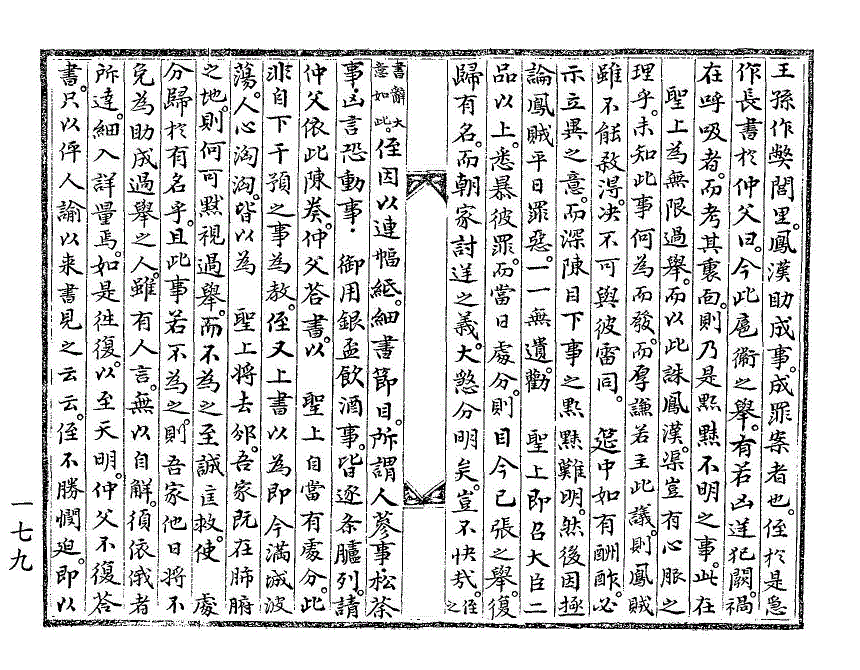 王孫作弊閭里。鳳漢助成事。成罪案者也。侄於是急
作長書於仲父曰。今此扈衛之擧。有若凶逆犯闕。禍
在呼吸者。而考其裏面。則乃是點黮不明之事。此在
聖上爲無限過擧。而以此誅鳳漢。渠豈有心服之
理乎。未知此事何爲而發。而厚謙若主此議。則鳳賊
雖不能赦得。决不可與彼雷同。筵中如有酬酢。必
示立異之意。而深陳目下事之點黮難明。然後因極
論鳳賊平日罪惡。一一無遺。勸 聖上即召大臣二
品以上。悉暴彼罪。而當日處分。則目今已張之擧。復
歸有名。而朝家討逆之義。大慜分明矣。豈不快哉。侄之
書辭大意如此。侄因以連幅紙。細書節目。所謂人蔘事松茶
事。凶言恐動事。御用銀盃飮酒事。皆逐条臚列。請
仲父依此陳奏。仲父荅書。以 聖上自當有處分。此
非自下干預之事爲敎。侄又上書以爲即今滿城波
蕩。人心洶洶。皆以爲 聖上將去邠。吾家旣在肺腑
之地。則何可默視過擧。而不爲之至誠匡救。使 處
分歸於有名乎。且此事若不爲之。則吾家他日將不
免爲助成過擧之人。雖有人言。無以自解。須依俄者
所達。細入詳量焉。如是往復。以至天明。仲父不復荅
書。只以伻人諭以来書見之云云。侄不勝憫迫。即以
一七九